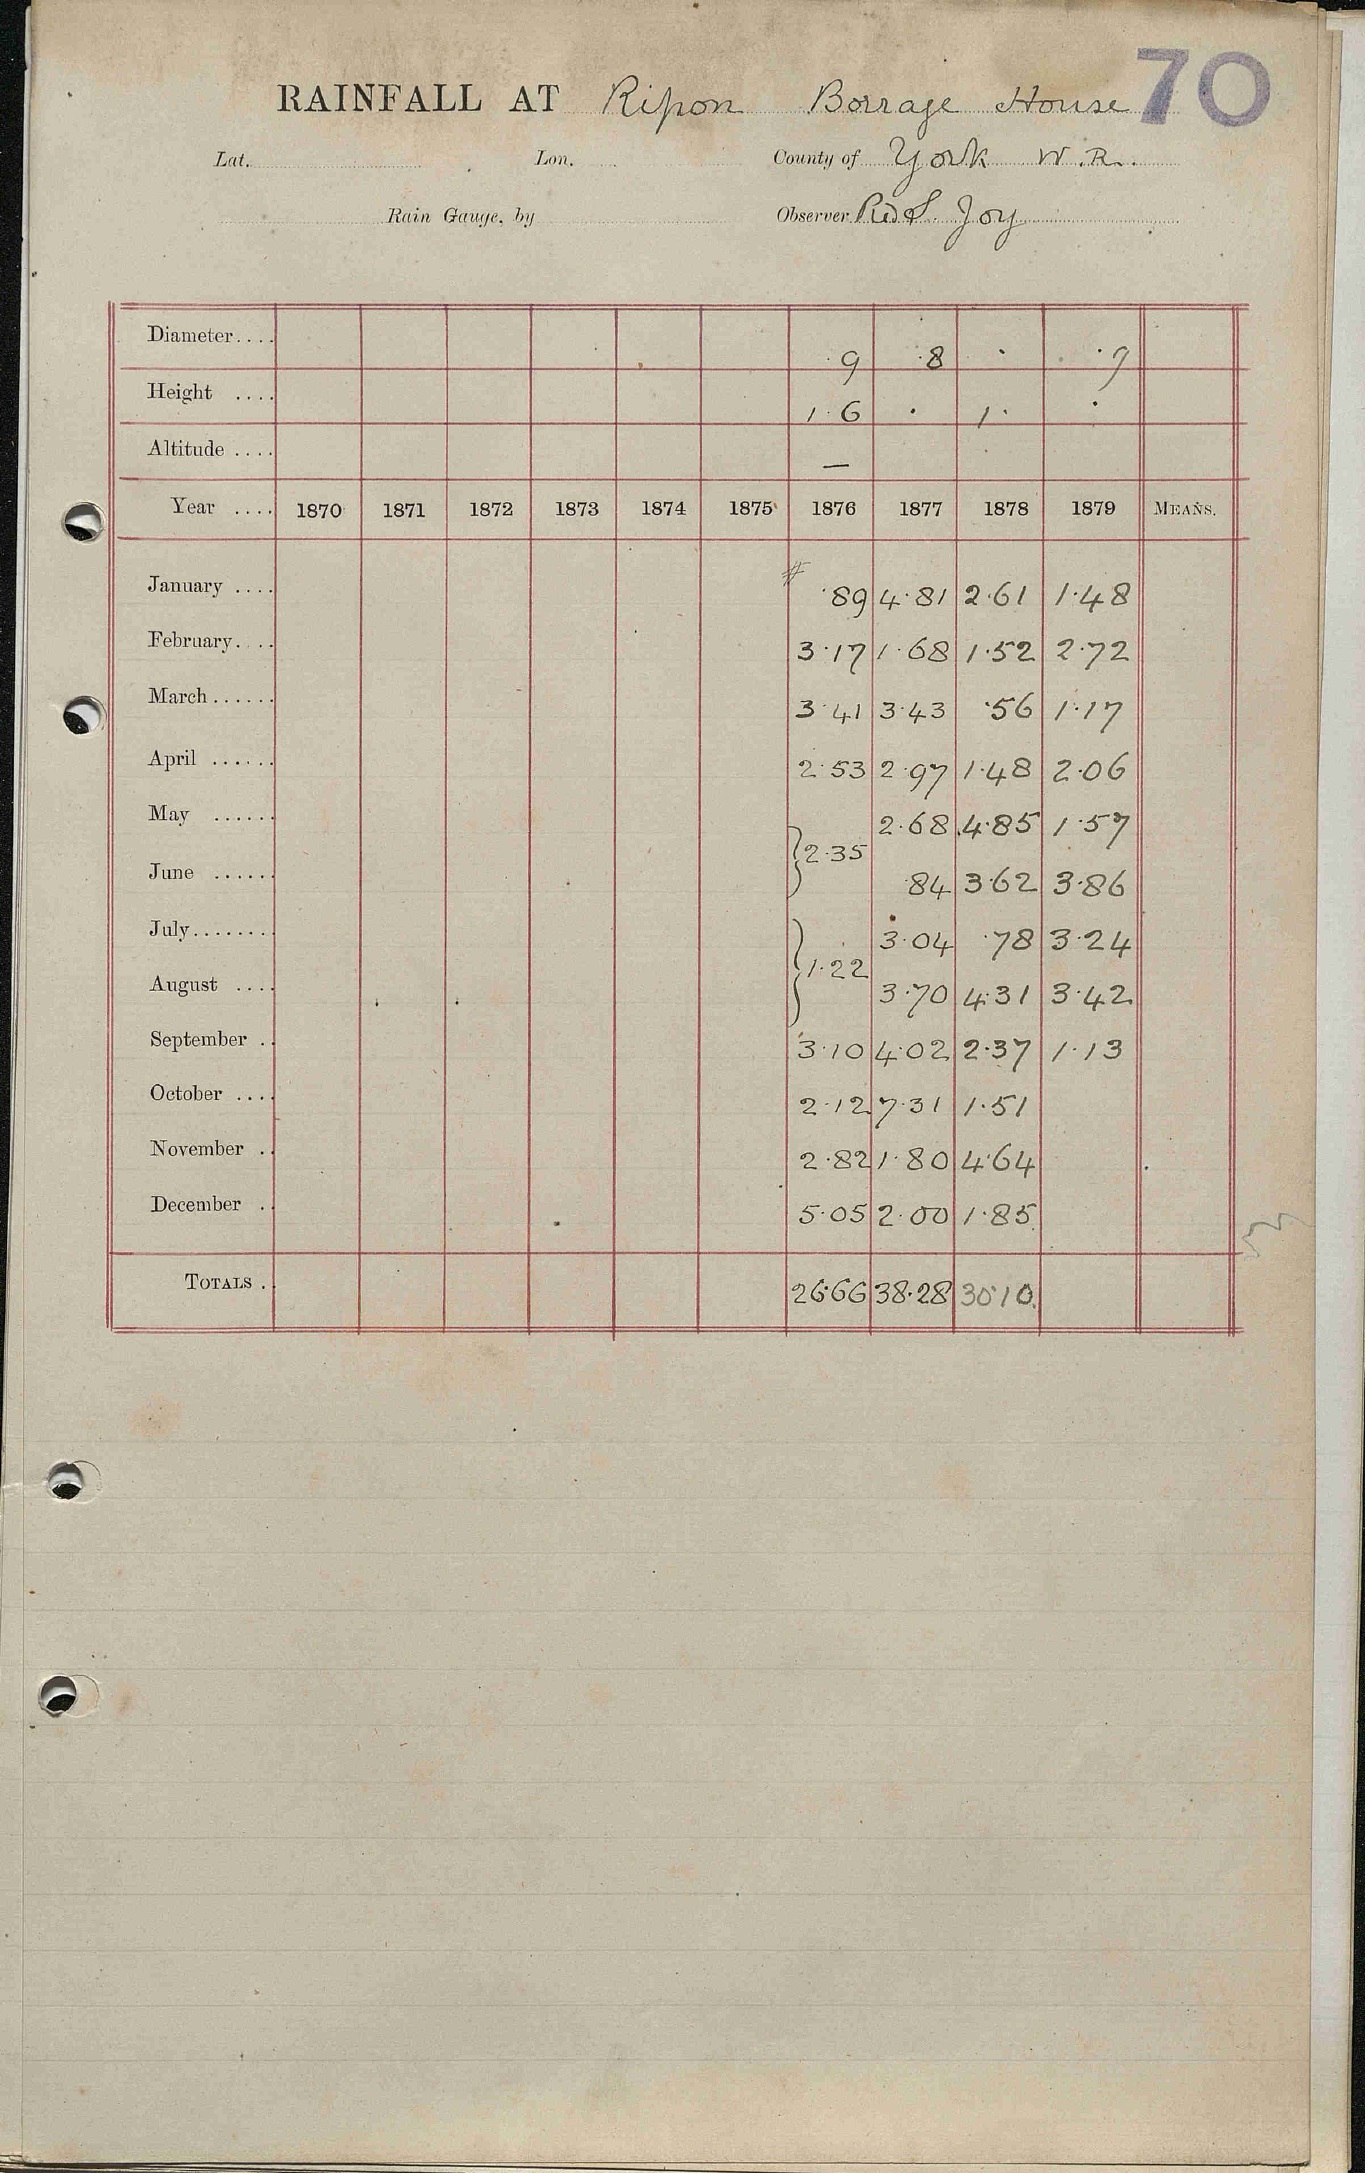 70
RAINFALL AT Ripon Borrage House
Lat. Lon. County of York W.R.
Rain Gauge, by Observer S. Joy
Diameter.... 9 8 · 9
Height .... 1·6 · 1· ·
Altitude .... —
Year .... 1870 1871 1872 1873 1874 1875 1876 1877 1878 1879 MEANS.
January .... # ·89 4·81 2·61 1·48
February.... 3·17 1·68 1·52 2·72
March...... 3·41 3·43 ·56 1·17
April ...... 2·53 2·97 1·48 2·06
May ...... 2·68 4·85 1·57
} 2·35
June ...... ·84 3·62 3·86
July........ 3·04 ·78 3·24
} 1·22
August .... 3·70 4·31 3·42
September .. 3·10 4·02 2·37 1·13
October .... 2·12 7·31 1·51
November .. 2·82 1·80 4·64
December .. 5·05 2·00 1·85
TOTALS .. 26·66 38·28 30·10